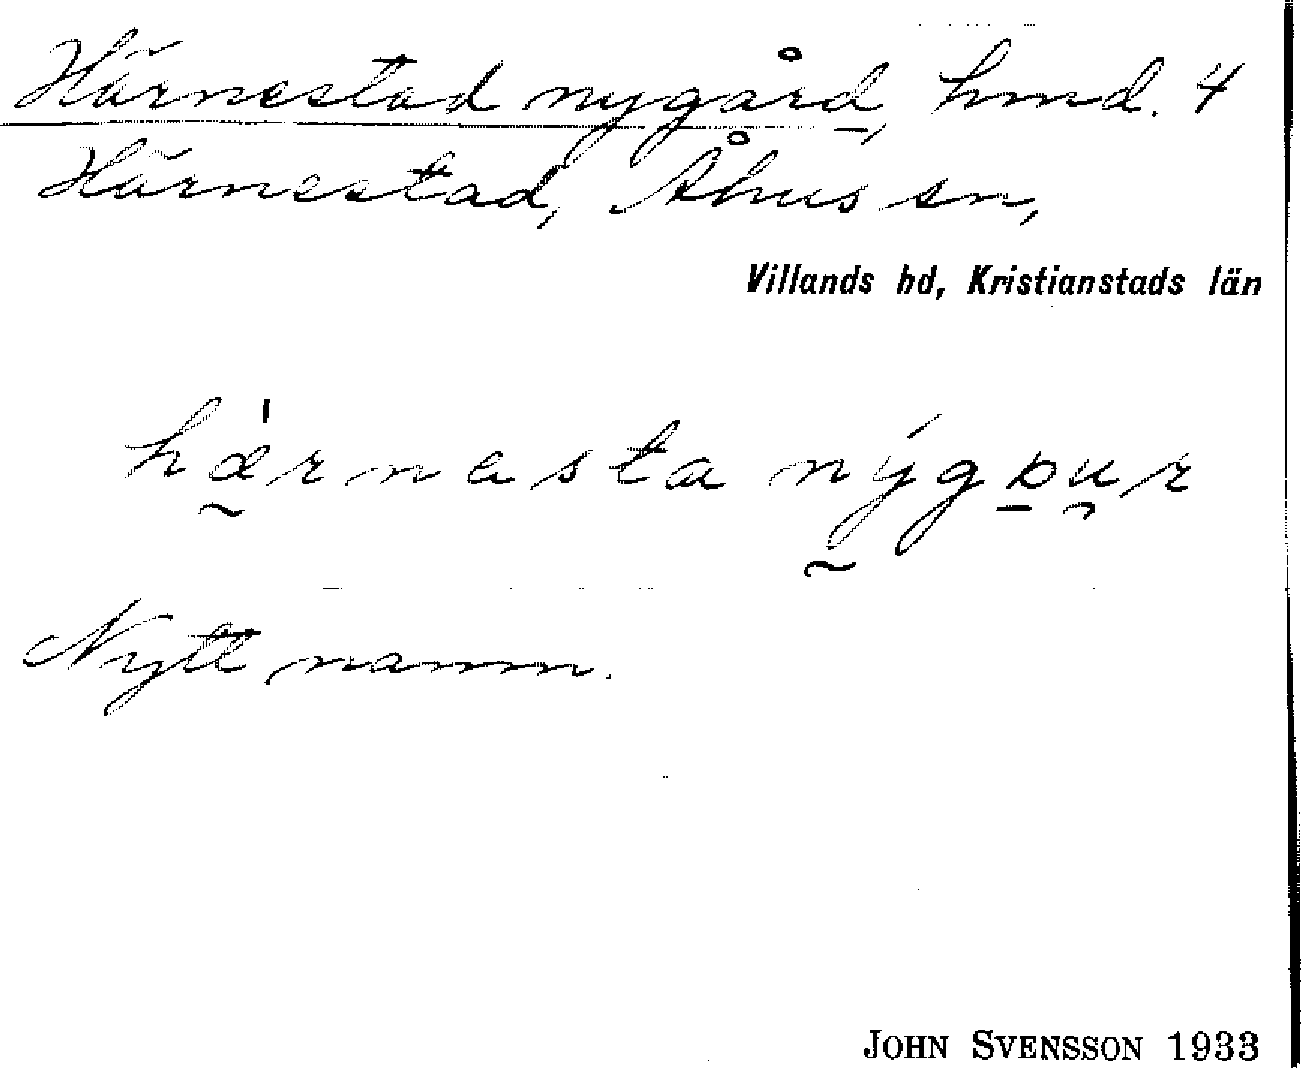 Härnestad nygård, hmd. 4
Härnestad, Åhus sn,
Villands hd, Kristianstads län
hærnesta nýgɒur
Nytt namn.
JOHN SVENSSON 1933